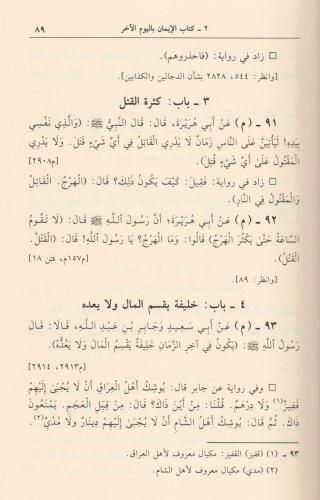 ٢ ـ كتاب الإيمان باليوم الآخر ٨٩
□ زاد في رواية: (فاحذروهم).
[وانظر: ٥٤٤، ٢٨٢٨ بشأن الدجالين والكذابين].
٣ ـ باب: كثرة القتل
٩١ ـ (م) عَنْ أَبِي هُرَيْرَةَ، قَالَ: قَالَ النَّبِيُّ ﷺ: (وَالَّذِي نَفْسِي
بِيَدِهِ! لَيَأْتِيَنَّ عَلَى النَّاسِ زَمَانٌ لَا يَدْرِي الْقَاتِلُ فِي أَيِّ شَيْءٍ قَتَلَ. وَلَا يَدْرِي
الْمَقْتُولُ عَلَىٰ أَيِّ شَيْءٍ قُتِلَ). [م٢٩٠٨]
□ زاد في رواية: فَقِيلَ: كَيْفَ يَكُونُ ذَلِكَ؟ قَالَ: (الْهَرْجُ. الْقَاتِلُ
وَالْمَقْتُولُ فِي النَّارِ).
٩٢ ـ (م) عَنْ أَبِي هُرَيْرَةَ؛ أَنَّ رَسُولَ اللَّهِ ﷺ قَالَ: (لَا تَقُومُ
السَّاعَةُ حَتَّىٰ يَكْثُرَ الْهَرْجُ) قَالُوا: وَمَا الْهَرْجُ؟ يَا رَسُولَ اللَّهِ! قَالَ: (الْقَتْلُ.
الْقَتْلُ). [م١٥٧م، فتن ١٨]
[وانظر: ٨٩].
٤ ـ باب: خليفة يقسم المال ولا يعده
٩٣ ـ (م) عَنْ أَبِي سَعِيدٍ وَجَابِرِ بْنِ عَبْدِ اللَّهِ، قَالَا: قَالَ
رَسُولُ اللَّهِ ﷺ: (يَكُونُ فِي آخِرِ الزَّمَانِ خَلِيفَةٌ يَقْسِمُ الْمَالَ وَلَا يَعُدُّهُ).
[م٢٩١٣، ٢٩١٤]
□ وفي رواية عن جابر قال: يُوشِكُ أَهْلُ الْعِرَاقِ أَنْ لَا يُجْبَىٰ إِلَيْهِمْ
قَفِيزٌ(١) وَلَا دِرْهَمٌ. قُلْنَا: مِنْ أَيْنَ ذَاكَ؟ قَالَ: مِنْ قِبَلِ الْعَجَمِ. يَمْنَعُونَ
ذَاكَ. ثُمَّ قَالَ: يُوشِكُ أَهْلُ الشَّامِ أَنْ لَا يُجْبَىٰ إِلَيْهِمْ دِينَارٌ وَلَا مُدْيٌ(٢).
٩٣ ـ (١) (قفيز) القفيز: مكيال معروف لأهل العراق.
(٢) (مدي) مكيال معروف لأهل الشام.